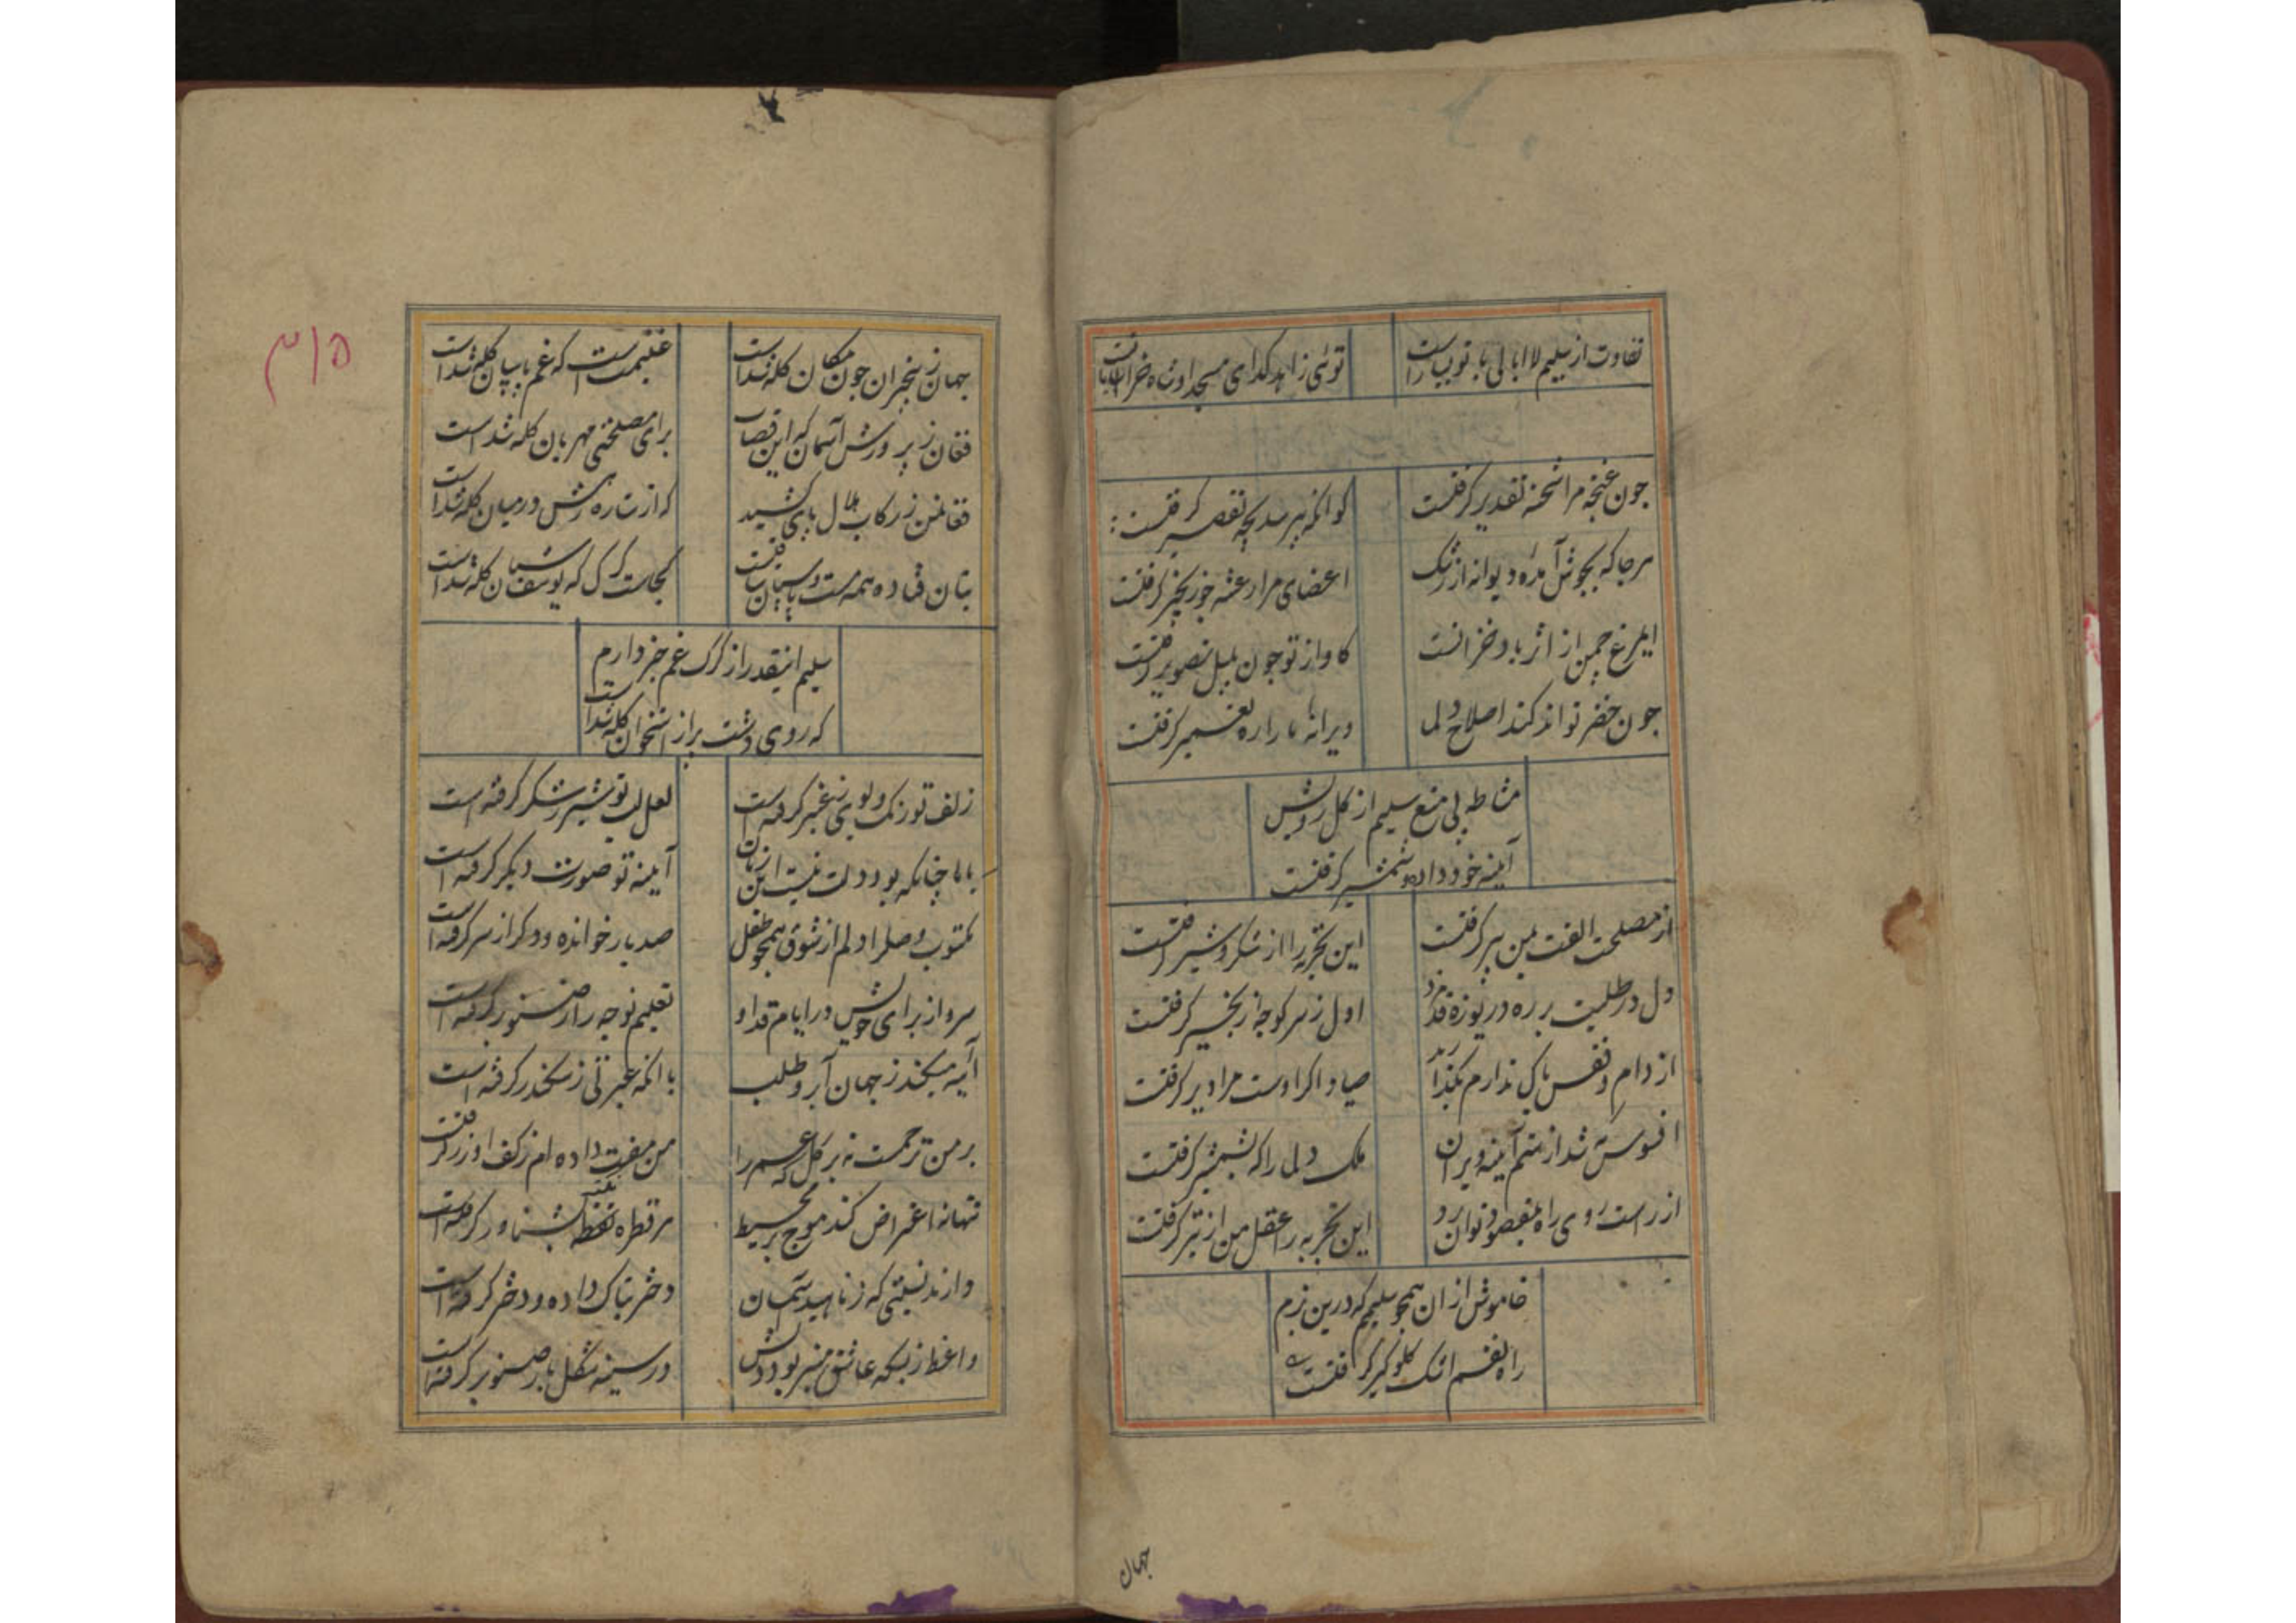 تفاوت از سلیم لاابالی با تو بسیار است
توئی زاهد کدای مسجد او شاه خراباتست
چون غنچه مرا شحنه تقدیر کرفتست
کو انکه بپرسد بچه تقصیر کرفتست
هرجا که بجوش آمده دیوانه از رشک
اعضای مرا رعشه چو زنجیر کرفتست
ای مرغ چمن از اثر باد خزانست
کاواز تو چون بلبل تصویر کرفتست
چون خضر تواند کند اصلاح دلها
ویرانه ما را ره تعمیر کرفتست
مشاطه پی منع سلیم از کل رویش
آینه خود داده و شمشیر کرفتست
از مصلحت الفت بمن پیر کرفتست
این تجربه را از شکر و شیر کرفتست
دل در طلبت بر ره دریوزه قدم زد
اول ز سر کوچه زنجیر کرفتست
از دام و قفس باک ندارم بکذارید
صیاد اکر اوست مرا دیر کرفتست
افسوس که شد از ستم آینه ویران
ملک دلی را که بشمشیر کرفتست
از راست روی راه بمقصود توان برد
این تجربه را عقل من از تیر کرفتست
خاموش از ان همچو سلیمم که درین بزم
راه نفسم اشک کلوکیر کرفتست
جهان
۳۱۵
جهان ز بیخبران چون مکان کله شداست
غنیمت است که غم پاسبان کله شداست
فغان ز پرورش آسمان که این قصاب
برای مصلحتی مهربان کله شداست
فغانمن ز رکاب هلال پای کشید
که از ستاره رهش در میان کله شداست
بتان فتاده همه مست و پاسبان رفتست
کجاست کرک که یوسف شبان کله شداست
سلیم اینقدر از کرک غم خبر دارم
که روی دشت پر از استخوان کله شداست
زلف تو رنک و بوی ز عنبر کرفته است
لعل لب تو شیر ز شکر کرفته است
با ما چنانکه بود دلت نیست این زمان
آینه تو صورت دیکر کرفته است
مکتوب وصل را دلم از شوق همچو طفل
صد بار خوانده و دکر از سر کرفته است
سرو از برای خویش در ایام قد او
تعلیم نوحه را ز صنوبر کرفته است
آینه میکند ز جهان آبرو طلب
با انکه عبرتی ز سکندر کرفته است
بر من ترحمست نه بر کل که عمر را
من مفت داده ام ز کف او زر کرفته است
تنها نه اعتراض کند موج بر محیط
هر قطره نقطه بشناور کرفته است
دارند نسبتی که ز ناهید آسمان
دختر بتاک داده و دختر کرفته است
واعظ ز بسکه عاشق منبر بود دلش
در سینه شکل بار صنوبر کرفته است